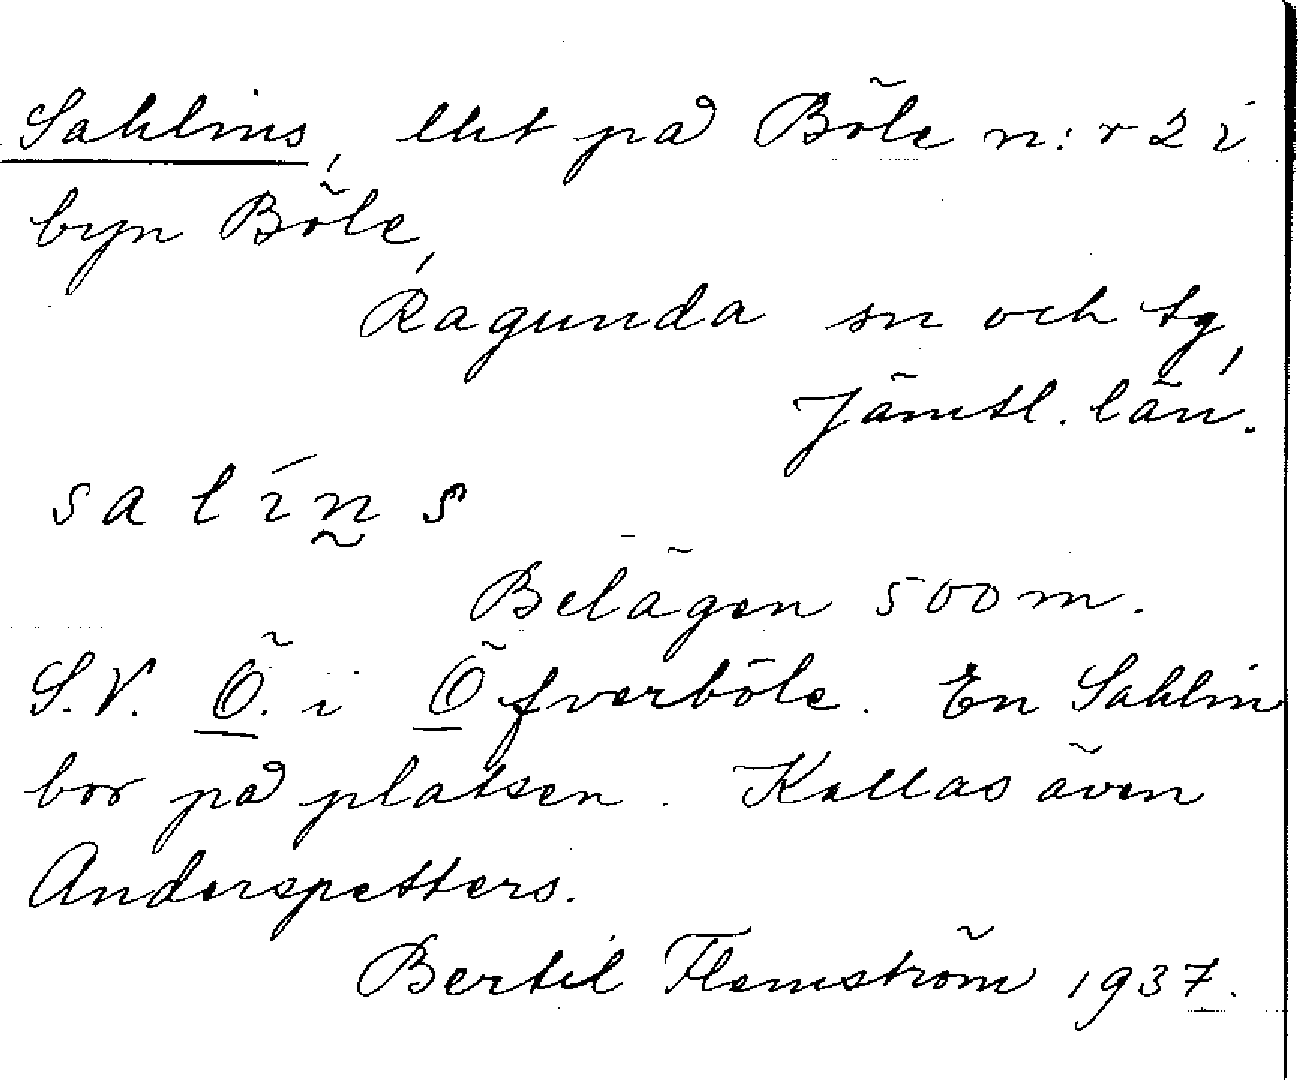 Sahlins, lht på Böle n:r 2 i
byn Böle,
Ragunda sn och tg,
Jämtl. län.
salíns
Belägen 500 m.
S.V. Ö. i Öfverböle. En Sahlin
bor på platsen. Kallas även
Anderspetters.
Bertil Flemström 1937.